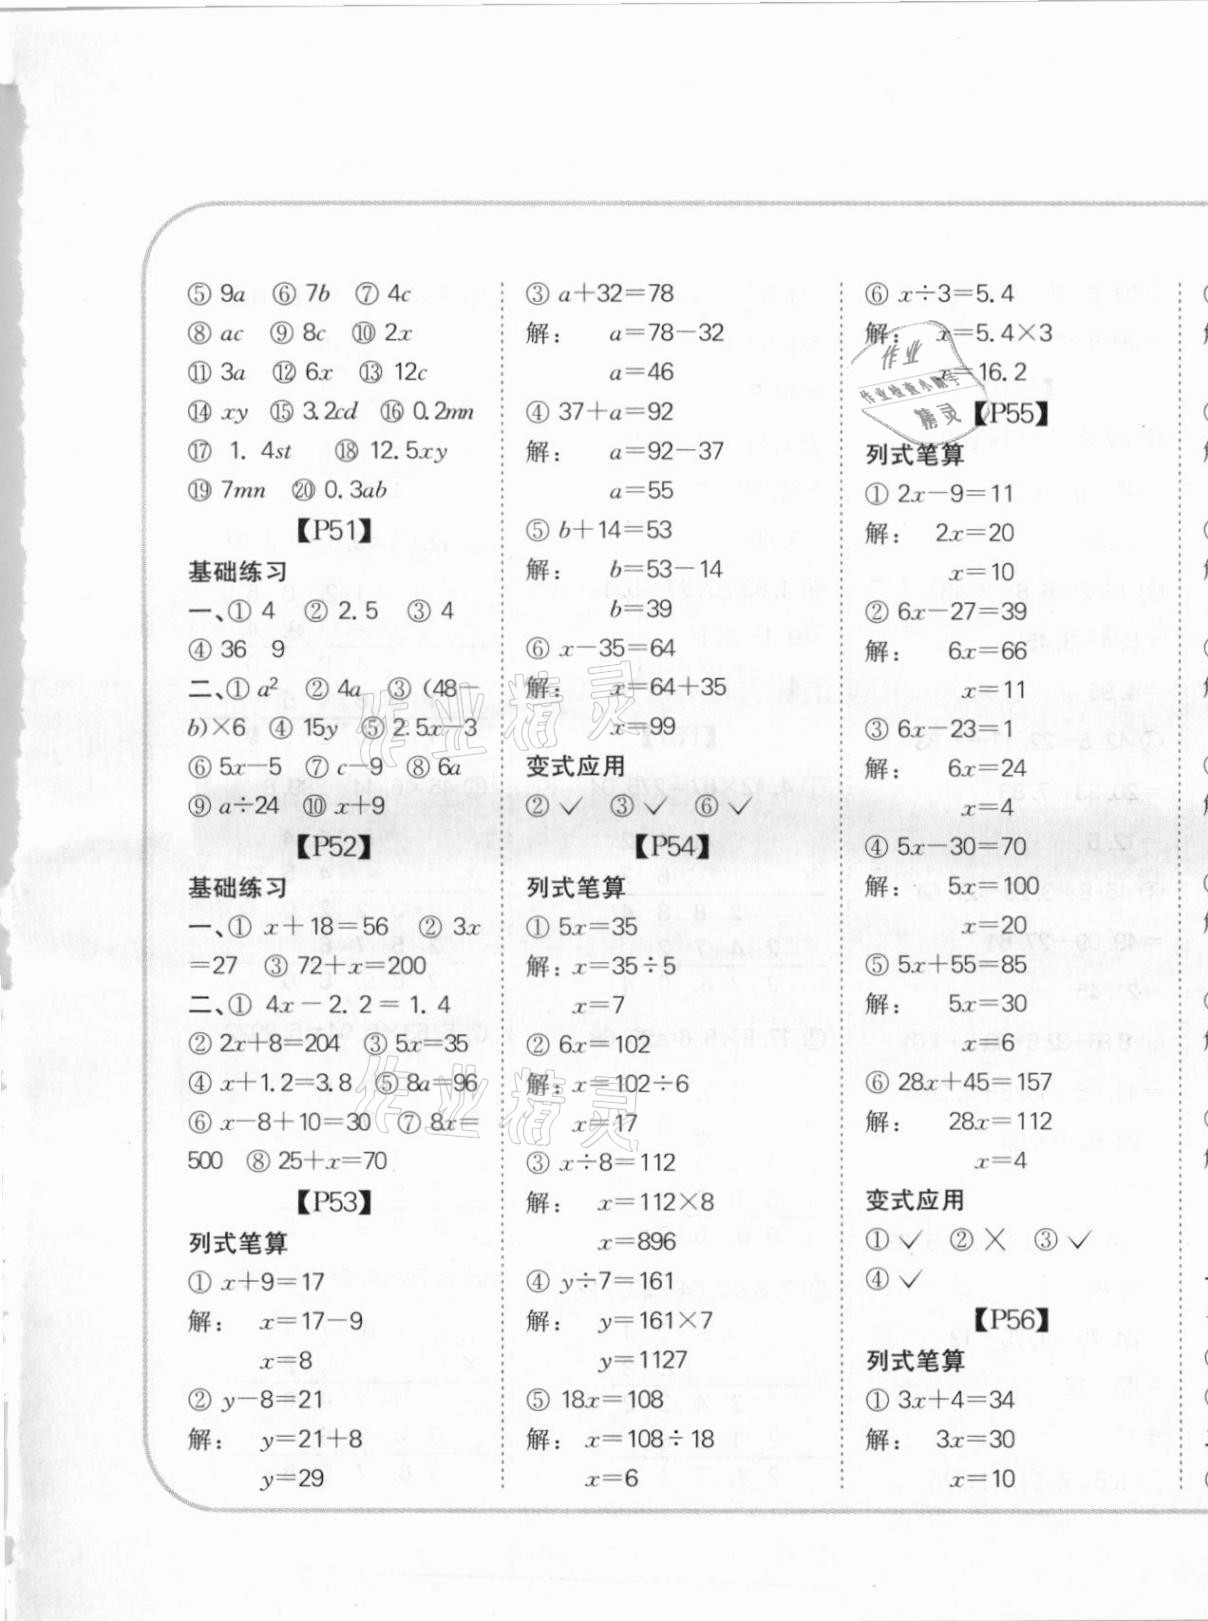 ⑤ 9a ⑥ 7b ⑦ 4c
⑧ ac ⑨ 8c ⑩ 2x
⑪ 3a ⑫ 6x ⑬ 12c
⑭ xy ⑮ 3.2cd ⑯ 0.2mn
⑰ 1.4st ⑱ 12.5xy
⑲ 7mn ⑳ 0.3ab
【P51】
基础练习
一、① 4 ② 2.5 ③ 4
④ 36 9
二、① a² ② 4a ③ (48−
b)×6 ④ 15y ⑤ 2.5x−3
⑥ 5x−5 ⑦ c−9 ⑧ 6a
⑨ a÷24 ⑩ x+9
【P52】
基础练习
一、① x+18=56 ② 3x
=27 ③ 72+x=200
二、① 4x−2.2=1.4
② 2x+8=204 ③ 5x=35
④ x+1.2=3.8 ⑤ 8a=96
⑥ x−8+10=30 ⑦ 8x=
500 ⑧ 25+x=70
【P53】
列式笔算
① x+9=17
解： x=17−9
x=8
② y−8=21
解： y=21+8
y=29
③ a+32=78
解： a=78−32
a=46
④ 37+a=92
解： a=92−37
a=55
⑤ b+14=53
解： b=53−14
b=39
⑥ x−35=64
解： x=64+35
x=99
变式应用
② ✓ ③ ✓ ⑥ ✓
【P54】
列式笔算
① 5x=35
解：x=35÷5
x=7
② 6x=102
解：x=102÷6
x=17
③ x÷8=112
解： x=112×8
x=896
④ y÷7=161
解： y=161×7
y=1127
⑤ 18x=108
解： x=108÷18
x=6
⑥ x÷3=5.4
解： x=5.4×3
x=16.2
【P55】
列式笔算
① 2x−9=11
解： 2x=20
x=10
② 6x−27=39
解： 6x=66
x=11
③ 6x−23=1
解： 6x=24
x=4
④ 5x−30=70
解： 5x=100
x=20
⑤ 5x+55=85
解： 5x=30
x=6
⑥ 28x+45=157
解： 28x=112
x=4
变式应用
① ✓ ② ✕ ③ ✓
④ ✓
【P56】
列式笔算
① 3x+4=34
解： 3x=30
x=10
作业
作业检查小助手
精灵
作业精灵
作业精灵